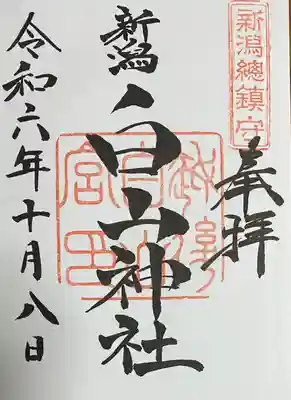 新潟總鎮守
奉拝
新潟白山神社
令和六年十月八日